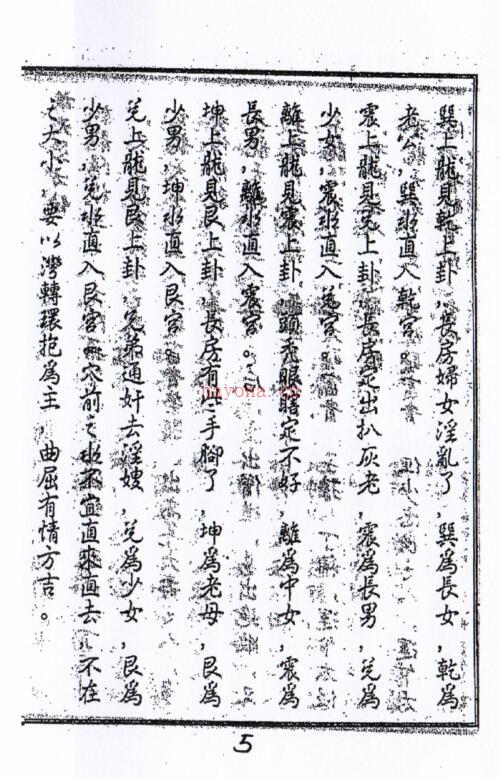 巽上龍見乾上卦,長房婦女淫亂了,巽為長女,乾為
老公,巽水直入乾宮。
震上龍見兌上卦,長房定出扒灰老,震為長男,兌為
少女,震水直入兌宮。
離上龍見震上卦,頭禿眼瞎定不好,離為中女,震為
長男,離水直入震宮。
坤上龍見艮上卦,長房有手腳了,坤為老母,艮為
少男,坤水直入艮宮。
兌上龍見艮上卦,兄弟通奸去淫嫂,兌為少女,艮為
少男,兌水直入艮宮,穴前之水不宜直來直去,不在
之大小,要以灣轉環抱為主,曲屈有情方吉。
5